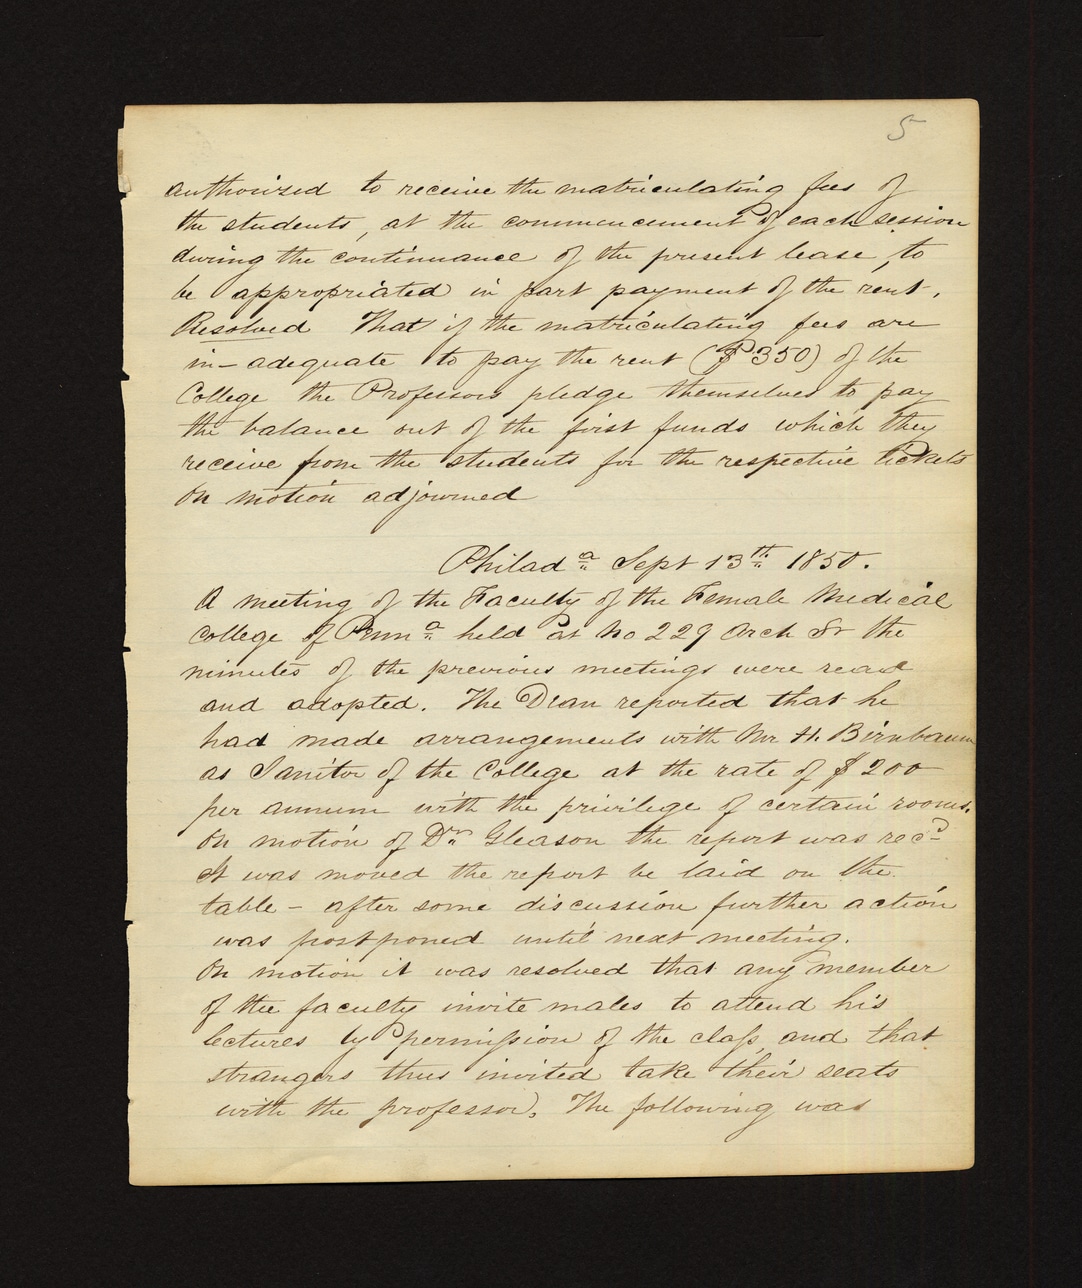 5
authorized to receive the matriculating fees of
the students, at the commencement of each session
during the continuance of the present lease, to
be appropriated in part payment of the rent.
Resolved That if the matriculating fees are
in-adequate to pay the rent ($350) of the
College the Professors pledge themselves to pay
the balance out of the first funds which they
receive from the students for the respective tickets
On motion adjourned
Philada Sept 13th 1850.
A meeting of the Faculty of the Female Medical
College of Penna held at No 229 Arch St the
minutes of the previous meetings were read
and adopted. The Dean reported that he
had made arrangements with Mr H. Birnbaum
as Janitor of the College at the rate of $200
per annum with the privilege of certain rooms.
On motion of Dr Gleason the report was recd
It was moved the report be laid on the
table – after some discussion further action
was postponed until next meeting.
On motion it was resolved that any member
of the faculty invite males to attend his
lectures by permission of the class and that
strangers thus invited take their seats
with the professor. The following was